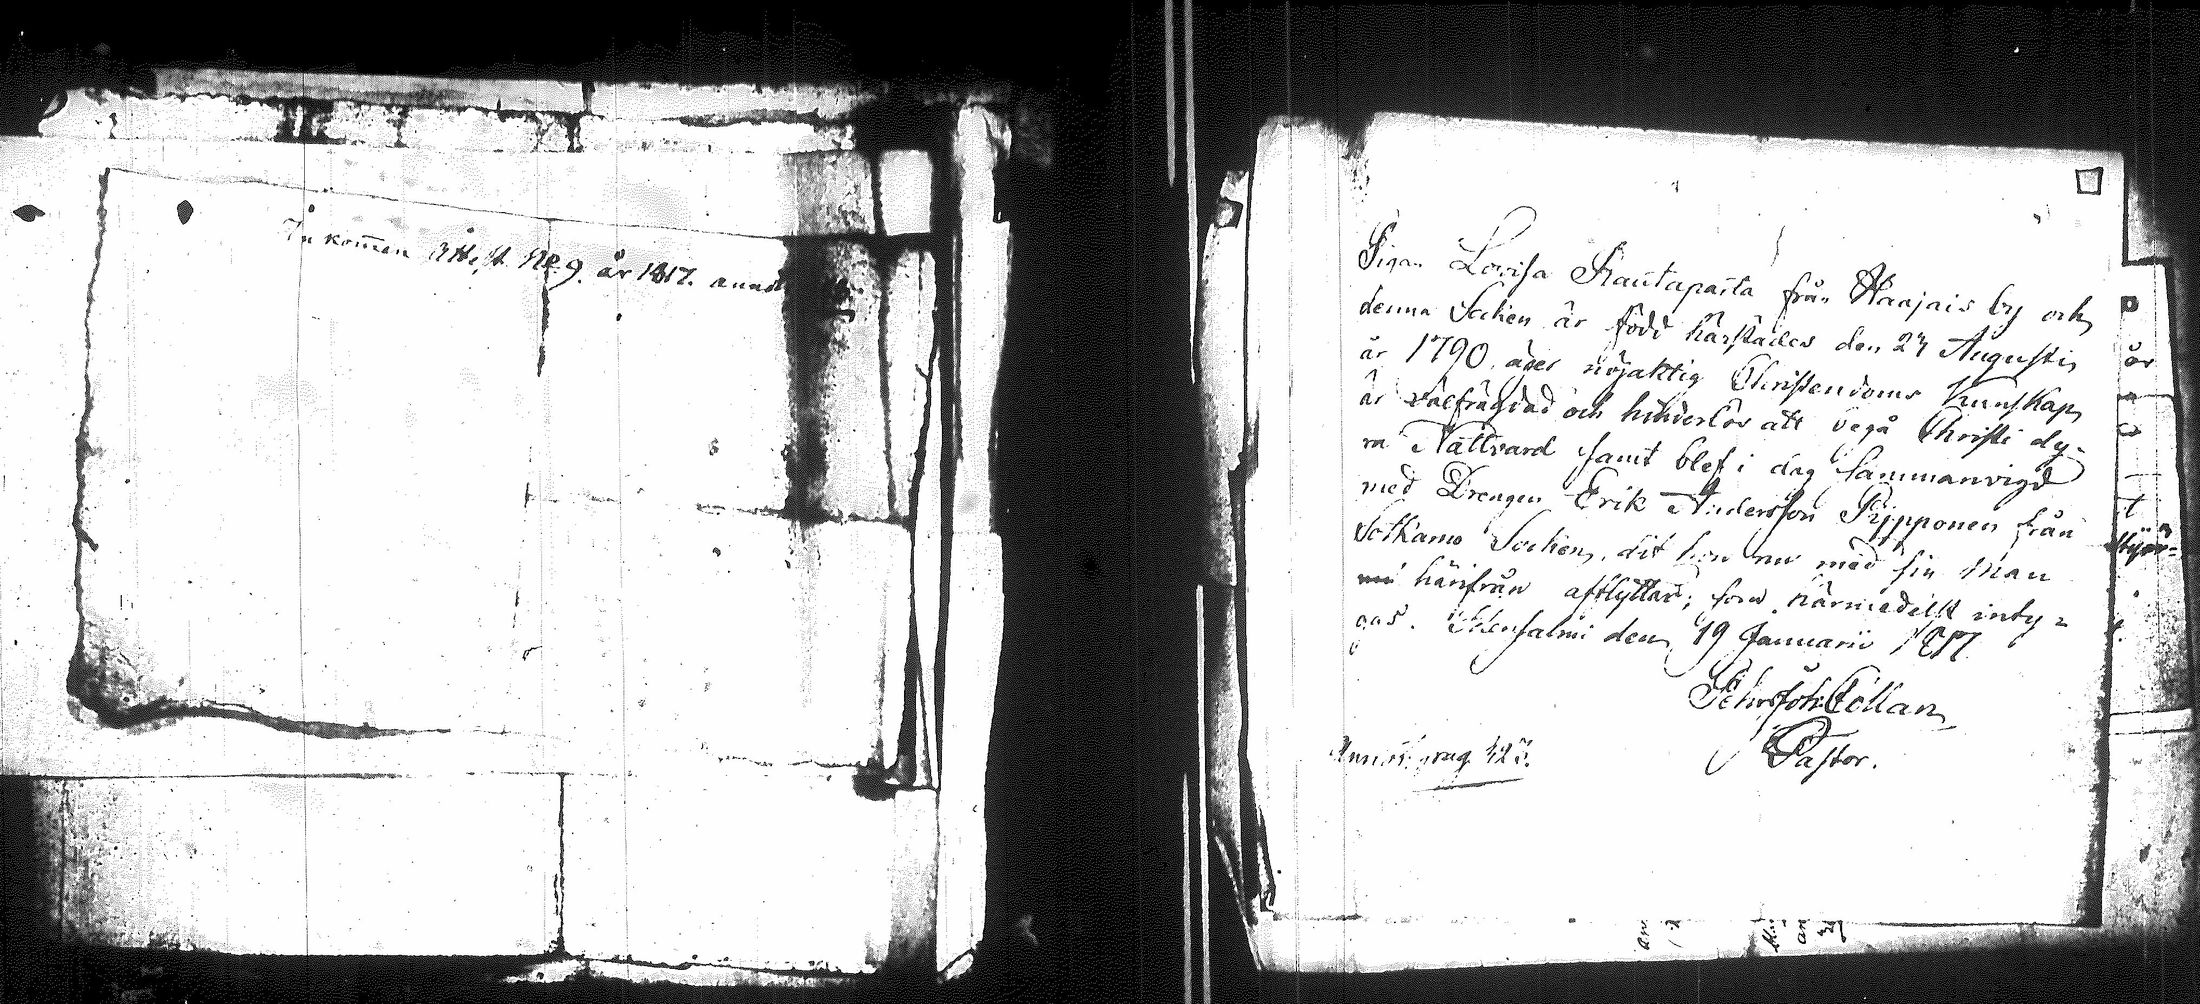 Inkom̄en Attest No 9. år 1817. annot
Pigan Lovisa Rautaparta från Haajais by och
denna Sochen är född härstädes den 23 Augusti
år 1790. äger nöjaktig Christendoms Kunskap,
är välfrägdad och hinderlös att begå Christi dy-
ra Nattvard samt blef i dag sammanvigd
med Drengen Erik Andersson Pypponen från
Sotkamo Sochen, dit hon nu med sin Man
härifrån afflyttar; som härmedelst inty-
gas. Idensalmi den 19 Januarii 1817
Collan
Pastor.
pag 423.